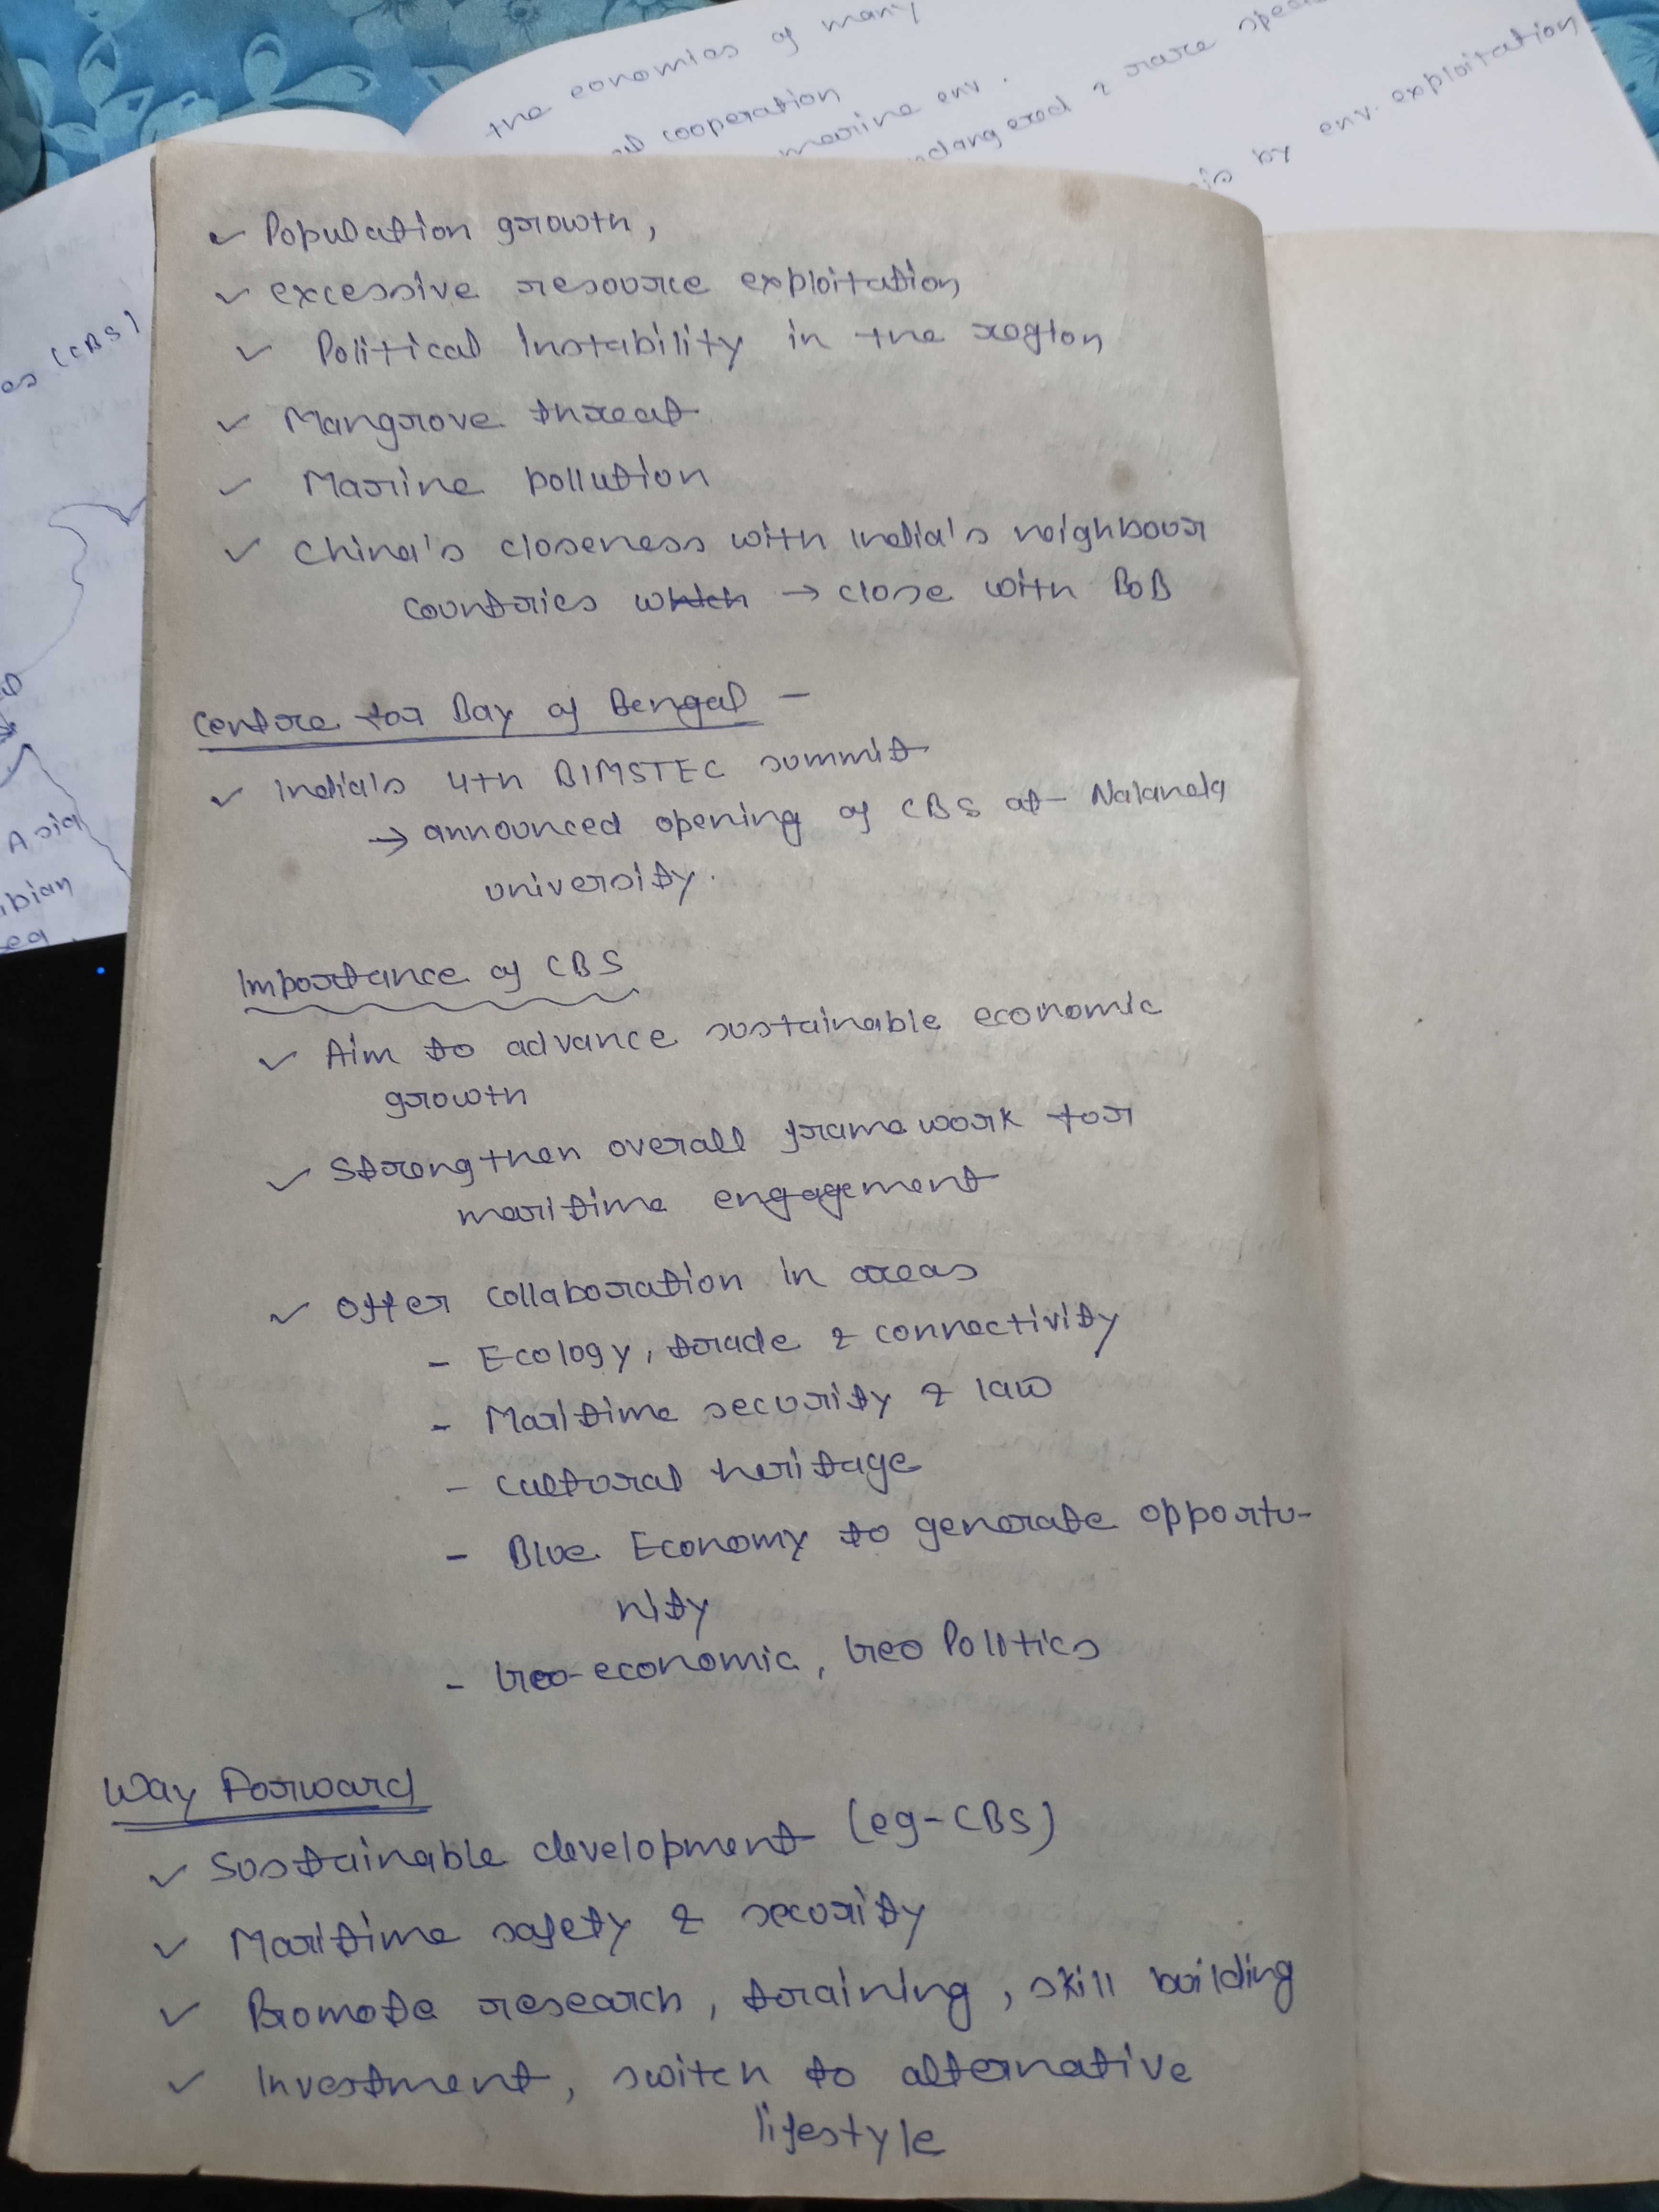 the economies of many
cooperation
marine env.
rare
by env. exploitation
(CBS)
Asia
✓ Population growth,
✓ excessive resource exploitation
✓ Political Instability in the region
✓ Mangrove threat
✓ Marine pollution
✓ China's closeness with India's neighbour
countries which → close with BoB
Centre for Bay of Bengal –
✓ India's 4th BIMSTEC summit
→ announced opening of CBS at Nalanda
university.
Importance of CBS
✓ Aim to advance sustainable economic
growth
✓ Strengthen overall framework for
maritime engagement
✓ Offer collaboration in areas
- Ecology, trade & connectivity
- Maritime security & law
- Cultural heritage
- Blue Economy to generate opportu-
nity
- Geo-economic, Geo Politics
Way Forward
✓ Sustainable development (eg-CBS)
✓ Maritime safety & security
✓ Promote research, training, skill building
✓ Investment, switch to alternative
lifestyle